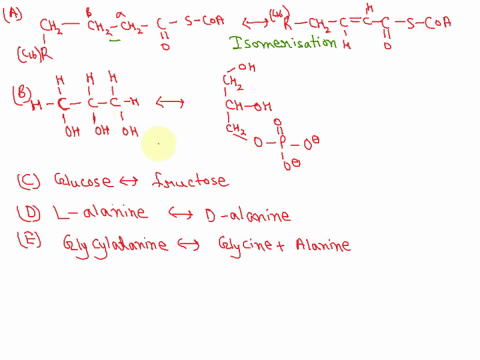 (A) CH₂ – CH₂ – CH₂ – C – S – CoA ⟷ (C16) R – CH₂ – C = C – C – S – CoA
β α
(C16) R
O
H
H
O
Isomerisation
(B) H – C – C – C – H ⟷
H H H
OH OH OH
OH
CH₂
CH – OH
CH₂ – O – P – O⊖
O
O⊖
(C) Glucose ↔ fructose
(D) L-alanine ↔ D-alanine
(E) Glycylalanine ↔ Glycine + Alanine